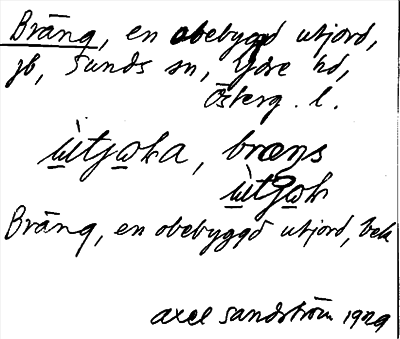 Bräng, en obebyggd utjord,
jb, Sunds sn, Ydre hd,
Österg. l.
ùtjoka, bræŋs
ùtjok
Bräng, en obebyggd utjord, bek
axel sandström 1929